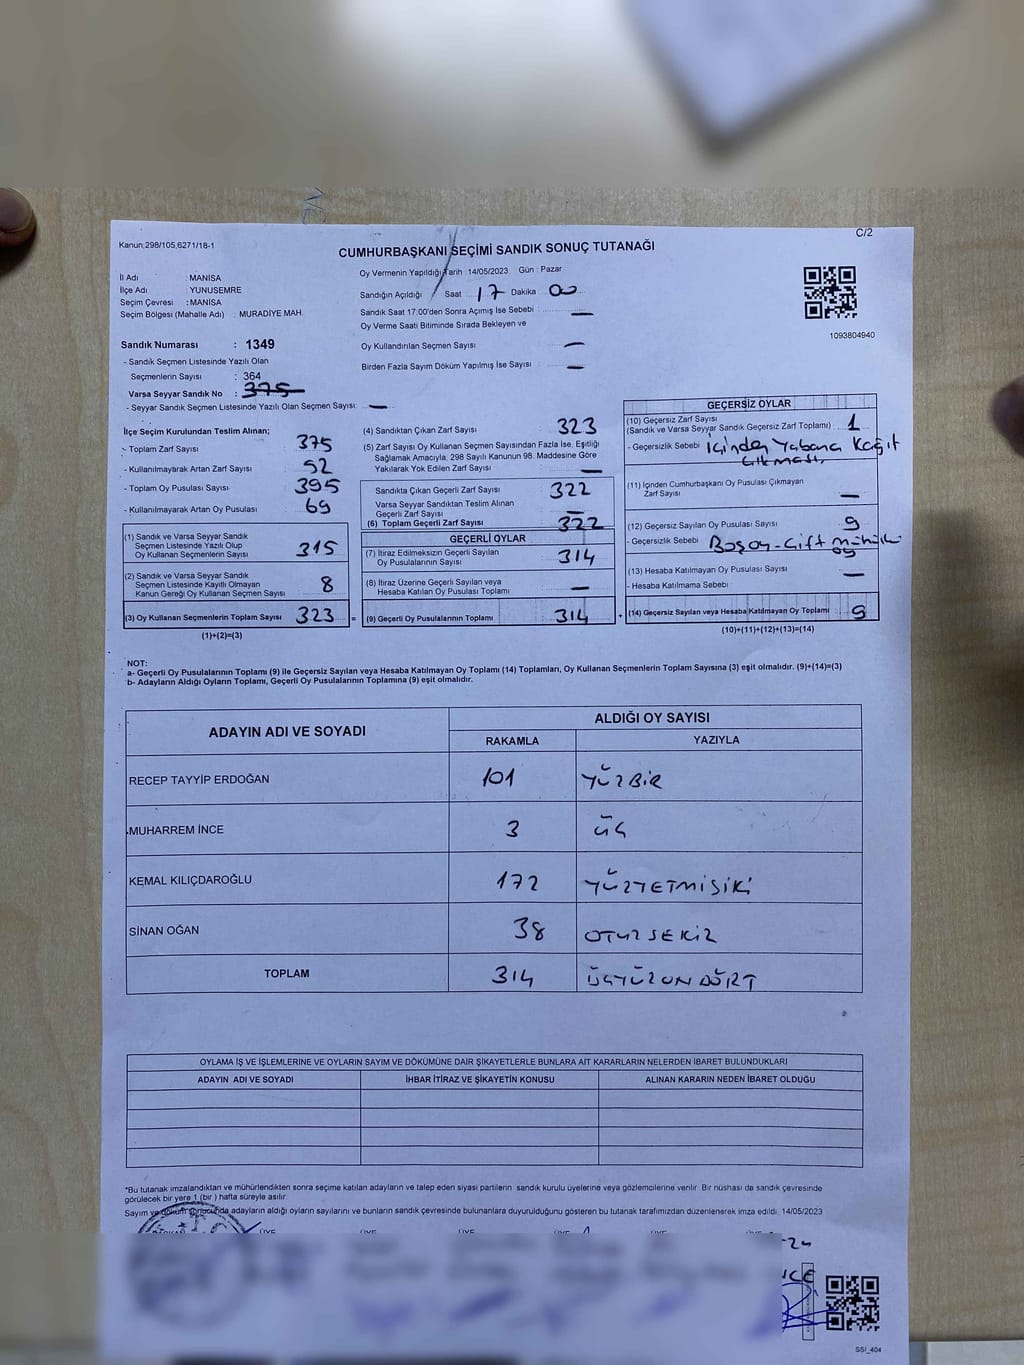 C/2
Kanun:298/105,6271/18-1
CUMHURBAŞKANI SEÇİMİ SANDIK SONUÇ TUTANAĞI
İl Adı : MANİSA
İlçe Adı : YUNUSEMRE
Seçim Çevresi : MANİSA
Seçim Bölgesi (Mahalle Adı) : MURADİYE MAH.
Oy Vermenin Yapıldığı Tarih :14/05/2023 Gün : Pazar
Sandığın Açıldığı Saat 17 Dakika 00
Sandık Saat 17:00'den Sonra Açımış İse Sebebi : —
Oy Verme Saati Bitiminde Sırada Bekleyen ve
Oy Kullandırılan Seçmen Sayısı —
Birden Fazla Sayım Döküm Yapılmış İse Sayısı : —
1093804940
Sandık Numarası : 1349
- Sandık Seçmen Listesinde Yazılı Olan
Seçmenlerin Sayısı : 364
Varsa Seyyar Sandık No : 375
- Seyyar Sandık Seçmen Listesinde Yazılı Olan Seçmen Sayısı: —
İlçe Seçim Kurulundan Teslim Alınan;
- Toplam Zarf Sayısı 375
- Kullanılmayarak Artan Zarf Sayısı 52
- Toplam Oy Pusulası Sayısı 395
- Kullanılmayarak Artan Oy Pusulası 69
(1) Sandık ve Varsa Seyyar Sandık
Seçmen Listesinde Yazılı Olup
Oy Kullanan Seçmenlerin Sayısı 315
(2) Sandık ve Varsa Seyyar Sandık
Seçmen Listesinde Kayıtlı Olmayan
Kanun Gereği Oy Kullanan Seçmen Sayısı 8
(3) Oy Kullanan Seçmenlerin Toplam Sayısı 323 =
(1)+(2)=(3)
(4) Sandıktan Çıkan Zarf Sayısı 323
(5) Zarf Sayısı Oy Kullanan Seçmen Sayısından Fazla İse, Eşitliği
Sağlamak Amacıyla; 298 Sayılı Kanunun 98. Maddesine Göre
Yakılarak Yok Edilen Zarf Sayısı —
Sandıkta Çıkan Geçerli Zarf Sayısı 322
Varsa Seyyar Sandıktan Teslim Alınan
Geçerli Zarf Sayısı —
(6) Toplam Geçerli Zarf Sayısı 322
GEÇERLİ OYLAR
(7) İtiraz Edilmeksizin Geçerli Sayılan
Oy Pusulalarının Sayısı 314
(8) İtiraz Üzerine Geçerli Sayılan veya
Hesaba Katılan Oy Pusulası Toplamı —
(9) Geçerli Oy Pusulalarının Toplamı 314 +
GEÇERSİZ OYLAR
(10) Geçersiz Zarf Sayısı
(Sandık ve Varsa Seyyar Sandık Geçersiz Zarf Toplamı) : 1
- Geçersizlik Sebebi içinden Yabancı Kağıt
Çıkması
(11) İçinden Cumhurbaşkanı Oy Pusulası Çıkmayan
Zarf Sayısı —
(12) Geçersiz Sayılan Oy Pusulası Sayısı 9
- Geçersizlik Sebebi Boş oy - Çift mühürlü
oy
(13) Hesaba Katılmayan Oy Pusulası Sayısı —
- Hesaba Katılmama Sebebi
(14) Geçersiz Sayılan veya Hesaba Katılmayan Oy Toplamı 9
(10)+(11)+(12)+(13)=(14)
NOT:
a- Geçerli Oy Pusulalarının Toplamı (9) ile Geçersiz Sayılan veya Hesaba Katılmayan Oy Toplamı (14) Toplamları, Oy Kullanan Seçmenlerin Toplam Sayısına (3) eşit olmalıdır. (9)+(14)=(3)
b- Adayların Aldığı Oyların Toplamı, Geçerli Oy Pusulalarının Toplamına (9) eşit olmalıdır.
ADAYIN ADI VE SOYADI ALDIĞI OY SAYISI
RAKAMLA YAZIYLA
RECEP TAYYİP ERDOĞAN 101 YÜZBİR
MUHARREM İNCE 3 ÜÇ
KEMAL KILIÇDAROĞLU 172 YÜZYETMİŞİKİ
SİNAN OĞAN 38 OTUZSEKİZ
TOPLAM 314 ÜÇYÜZONDÖRT
OYLAMA İŞ VE İŞLEMLERİNE VE OYLARIN SAYIM VE DÖKÜMÜNE DAİR ŞİKAYETLERLE BUNLARA AİT KARARLARIN NELERDEN İBARET BULUNDUKLARI
ADAYIN ADI VE SOYADI İHBAR İTİRAZ VE ŞİKAYETİN KONUSU ALINAN KARARIN NEDEN İBARET OLDUĞU
*Bu tutanak imzalandıktan ve mühürlendikten sonra seçime katılan adayların ve talep eden siyasi partilerin sandık kurulu üyelerine veya gözlemcilerine verilir. Bir nüshası da sandık çevresinde
görülecek bir yere 1 (bir ) hafta süreyle asılır.
Sayım ve döküm sonucunda adayların aldığı oyların sayılarını ve bunların sandık çevresinde bulunanlara duyurulduğunu gösteren bu tutanak tarafımızdan düzenlenerek imza edildi. 14/05/2023
ÜYE ÜYE ÜYE ÜYE ÜYE
SSİ_404